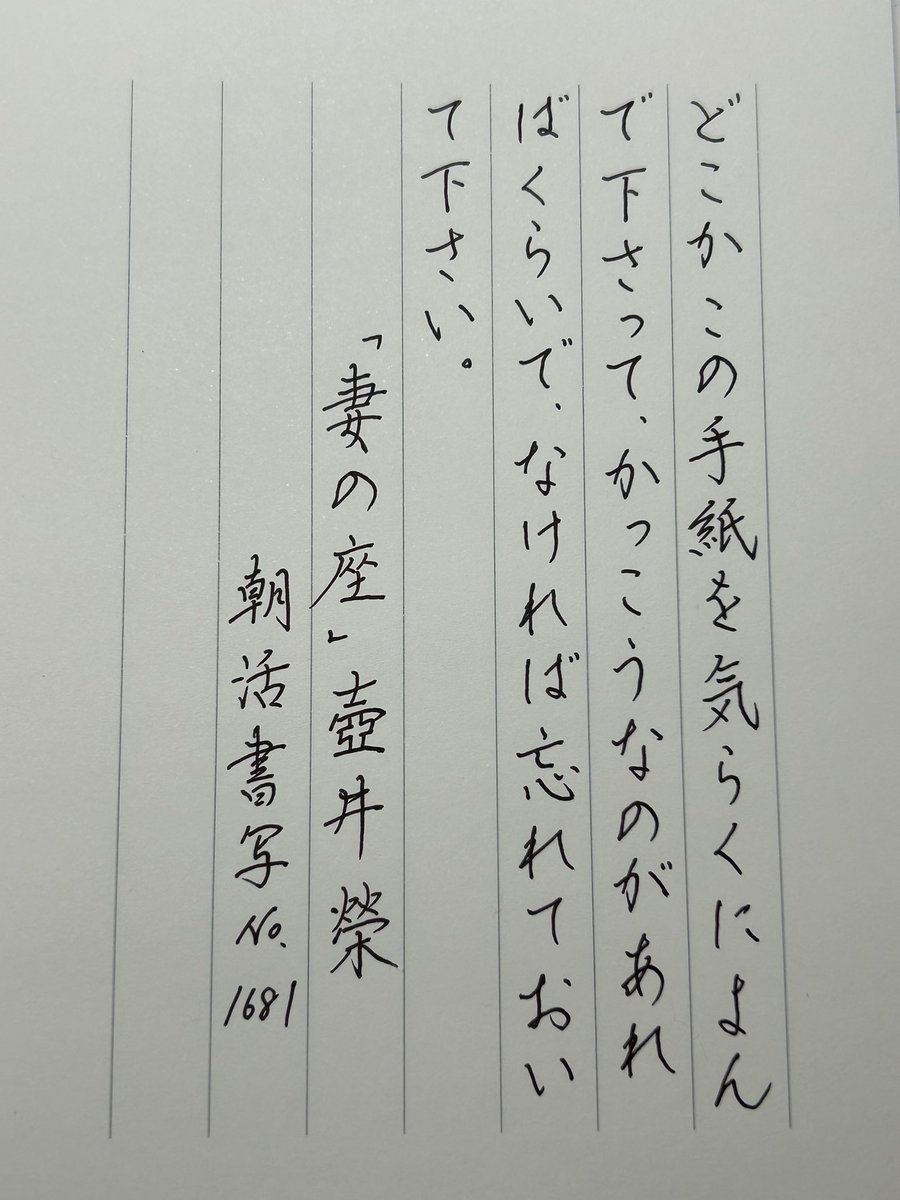 どこかこの手紙を気らくによん
で下さって、かっこうなのがあれ
ばくらいで、なければ忘れておい
て下さい。
「妻の座」壺井榮
朝活書写No.1681